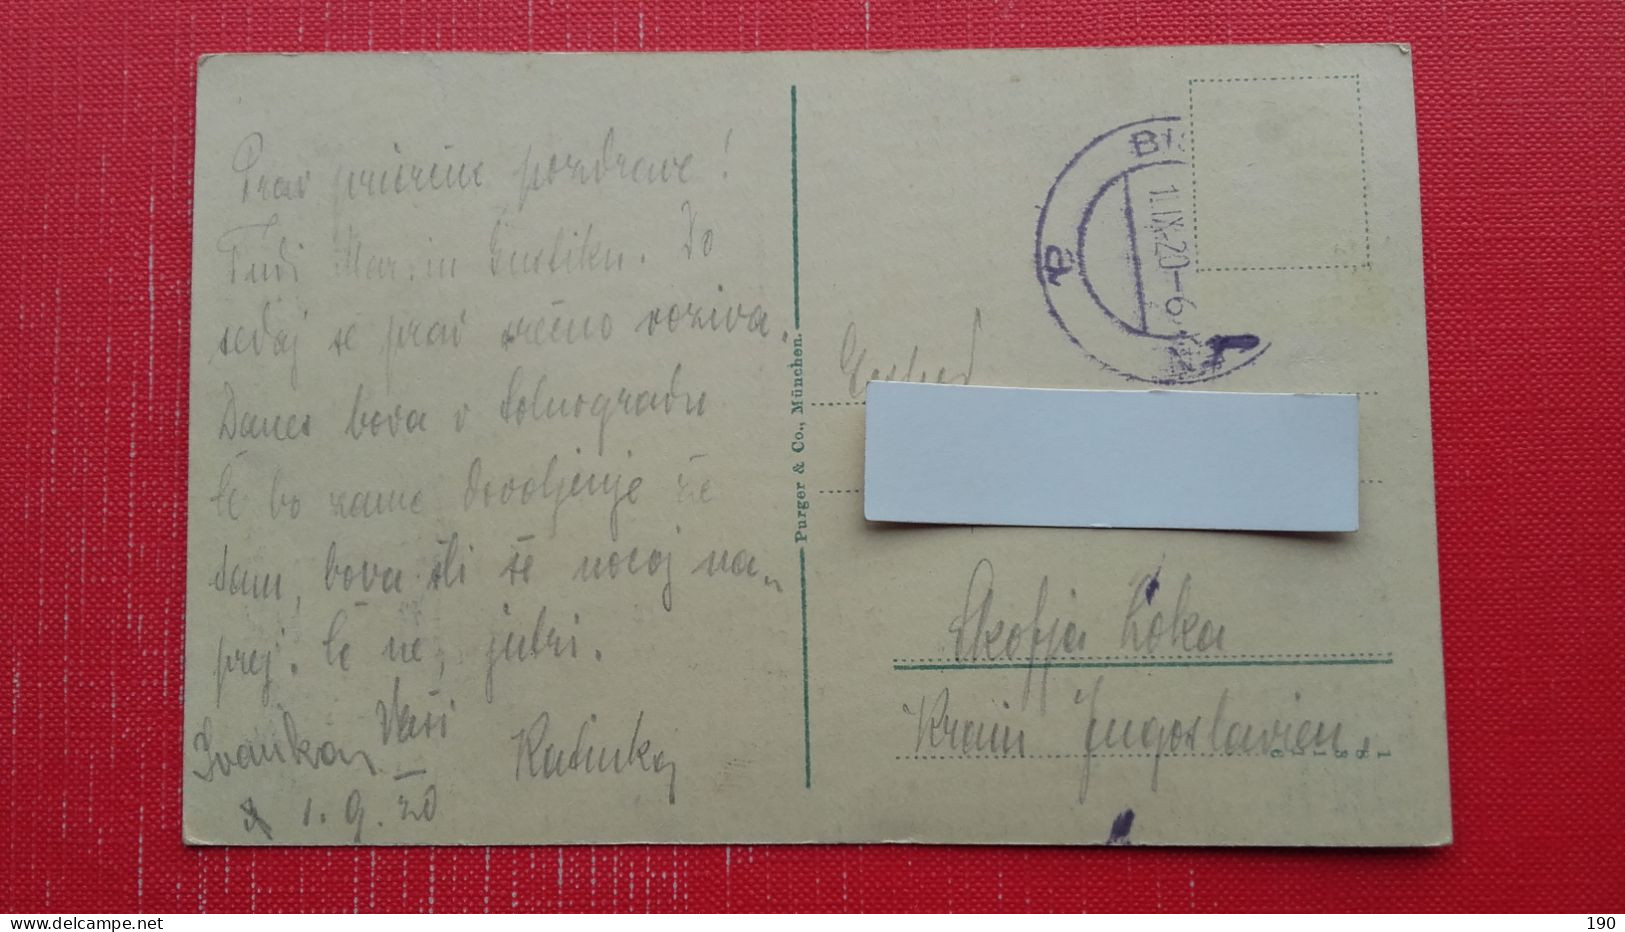 Prav prisrčne pozdrave!
Tudi Mar. in Gustiku. Do
sedaj se prav srečno voziva.
Danes bova v Solnogradu
če bo zame dovoljenje že
tam, bova šli še nocoj na-
prej. Če ne, jutri.
Vaši
Ivanka Katinka
1. 9. 20
Purger & Co., München.
BIS
1. IX. 20 - 6
Gospod
Škofja Loka
Krain Jugoslavien.
190